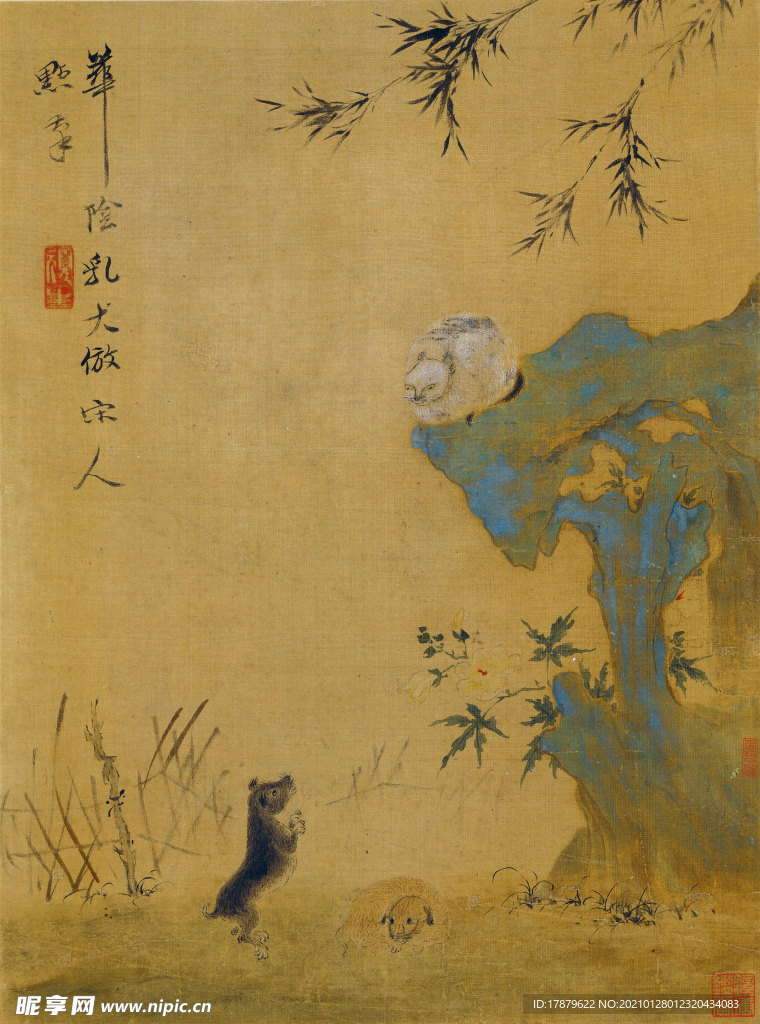 華陰乳犬倣宋人
點筆
昵享网 www.nipic.cn
ID:17879622 NO:20210128012320434083